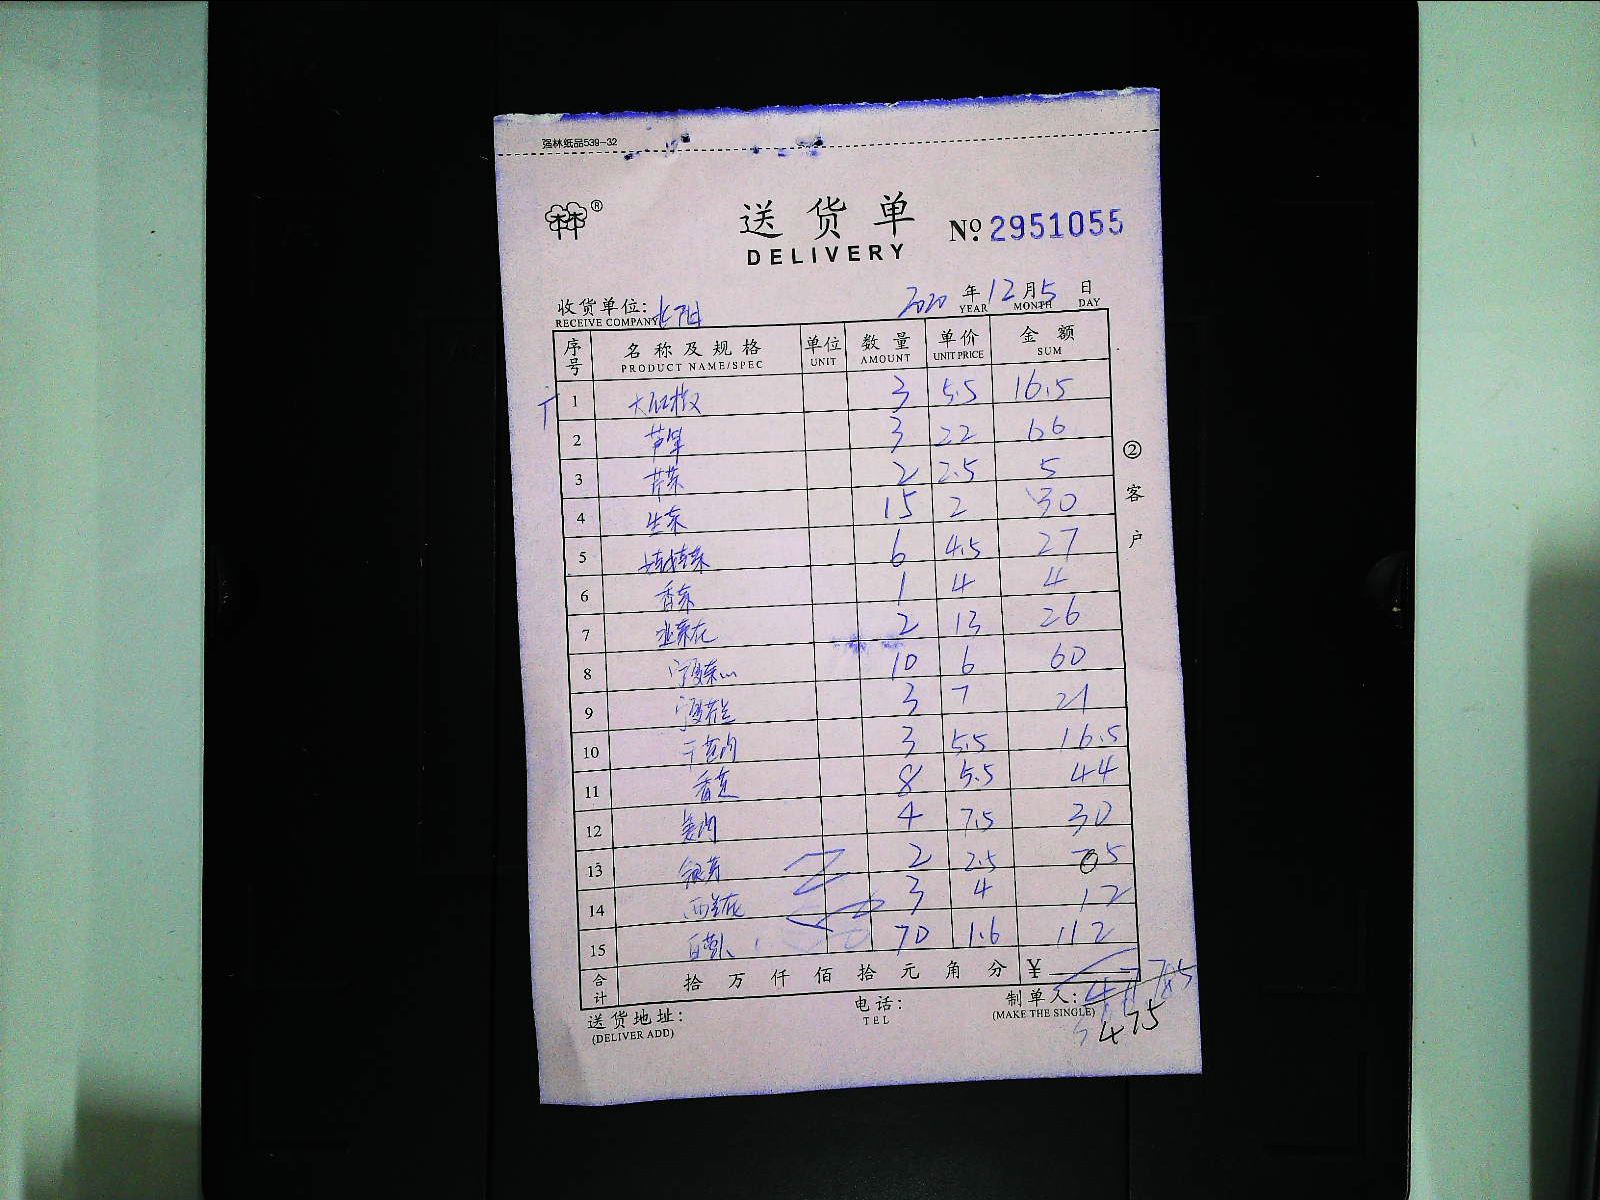 强林纸品539-32
林®
送货单
DELIVERY
No. 2951055
收货单位:
RECEIVE COMPANY
2020 年 12 月 5 日
YEAR MONTH DAY
序号 名称及规格 单位 数量 单价 金额
PRODUCT NAME/SPEC UNIT AMOUNT UNIT PRICE SUM
1 大红椒 3 5.5 16.5
2 芦笋 3 22 66
3 芹菜 2 2.5 5
4 生菜 15 2 30
5 娃娃菜 6 4.5 27
6 香菜 1 4 4
7 韭菜花 2 13 26
8 宁夏菜心 10 6 60
9 宁夏芥兰 3 7 21
10 干葱肉 3 5.5 16.5
11 香芝 8 5.5 44
12 姜肉 4 7.5 30
13 银芽 2 2.5 05
14 西兰花 3 4 12
15 白萝卜 70 1.6 112
合计 拾 万 仟 佰 拾 元 角 分 ¥
送货地址: 电话: 制单人:
(DELIVER ADD) TEL (MAKE THE SINGLE)
475
②客户